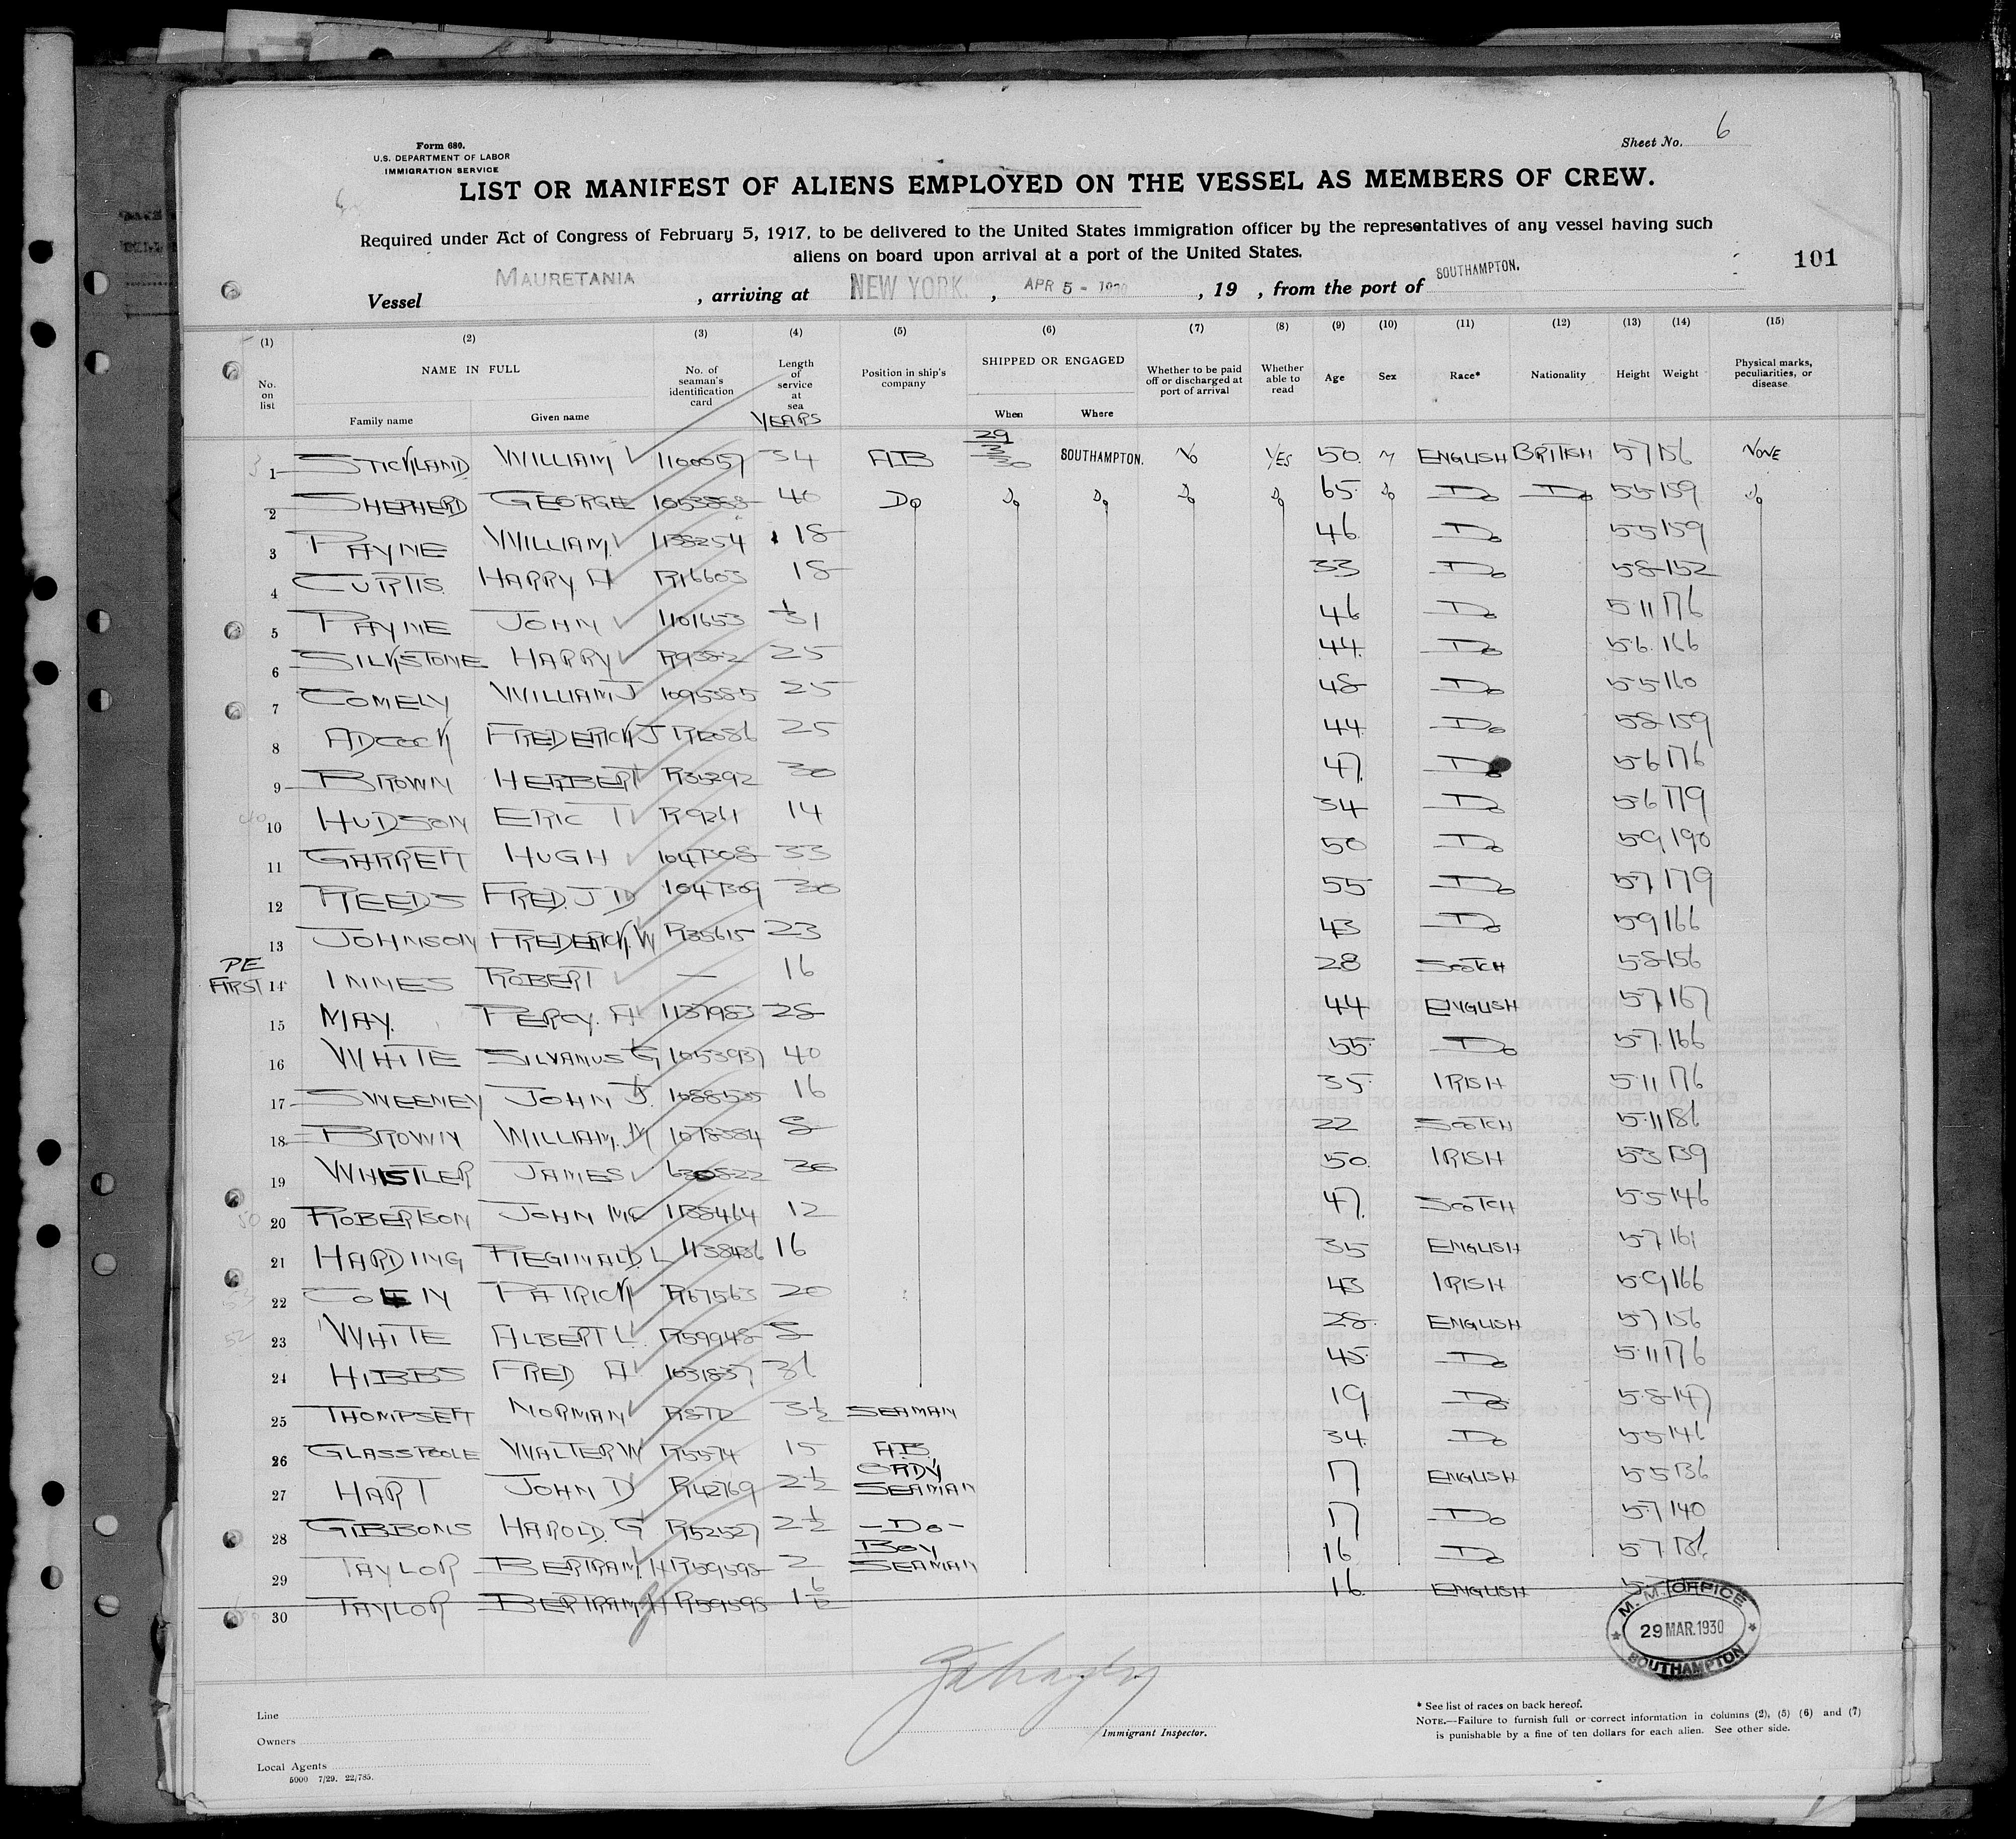 Sheet No. 6
Form 680.
U.S. DEPARTMENT OF LABOR
IMMIGRATION SERVICE
LIST OR MANIFEST OF ALIENS EMPLOYED ON THE VESSEL AS MEMBERS OF CREW.
Required under Act of Congress of February 5, 1917, to be delivered to the United States immigration officer by the representatives of any vessel having such
aliens on board upon arrival at a port of the United States.
101
Vessel MAURETANIA , arriving at NEW YORK. , APR 5 - 1930 , 19 , from the port of SOUTHAMPTON.
(1) (2) (3) (4) (5) (6) (7) (8) (9) (10) (11) (12) (13) (14) (15)
No. on list NAME IN FULL Family name Given name No. of seaman's identification card Length of service at sea YEARS Position in ship's company SHIPPED OR ENGAGED When Where Whether to be paid off or discharged at port of arrival Whether able to read Age Sex Race* Nationality Height Weight Physical marks, peculiarities, or disease
1 STICKLAND WILLIAM 1100057 34 AB 29/3/30 SOUTHAMPTON. No YES 50 M ENGLISH BRITISH 5 7 156 NONE
2 SHEPHERD GEORGE 1053853 40 Do Do Do Do Do 65 Do Do Do 5 5 159 Do
3 PAYNE WILLIAM 1138254 18 46 Do 5 5 159
4 CURTIS HARRY A R16603 18 33 Do 5 8 152
5 PAYNE JOHN 1101653 31 46 Do 5 11 176
6 SILKSTONE HARRY R9382 25 44 Do 5 6 166
7 COMELY WILLIAM J 1095385 25 48 Do 5 5 160
8 ADCOCK FREDERICK J 25 44 Do 5 8 159
9 BROWN HERBERT R35292 30 47 Do 5 6 176
10 HUDSON ERIC T R9261 14 34 Do 5 6 179
11 GARRETT HUGH 1047308 33 50 Do 5 9 190
12 REEDS FRED. J D 1047309 30 55 Do 5 7 179
13 JOHNSON FREDERICK W R35615 23 43 Do 5 9 166
PE FIRST 14 INNES ROBERT — 16 28 SCOTCH 5 8 156
15 MAY. PERCY. A 1137983 28 44 ENGLISH 5 7 167
16 WHITE SILVANUS G 1053937 40 55 Do 5 7 166
17 SWEENEY JOHN J. 1088535 16 35 IRISH 5 11 176
18 BROWN WILLIAM. M 1078584 8 22 SCOTCH 5 11 186
19 WHISTLER JAMES 630822 30 50 IRISH 5 3 139
20 ROBERTSON JOHN MC 1138464 12 47 SCOTCH 5 5 146
21 HARDING REGINALD. L 1138486 16 35 ENGLISH 5 7 161
22 PATRICK R67563 20 43 IRISH 5 9 166
23 WHITE ALBERT L. R59948 5 28 ENGLISH 5 7 156
24 HIBBS FRED A 1031837 31 45 Do 5 11 176
25 THOMPSETT NORMAN 3½ SEAMAN 19 Do 5 8 147
26 GLASSPOOLE WALTER W R5574 15 AB. 34 Do 5 5 146
27 HART JOHN D R42769 2½ ORDY SEAMAN 17 ENGLISH 5 5 136
28 GIBBONS HAROLD. G R52527 2½ -Do- 17 Do 5 7 140
29 TAYLOR BERTRAM. H R59598 2 BOY SEAMAN 16 Do 5 7
30 TAYLOR BERTRAM H R59595 16 ENGLISH
M. M. OFFICE
29 MAR. 1930
SOUTHAMPTON
Line
Owners
Local Agents
5000 7/29. 22/785.
Immigrant Inspector.
* See list of races on back hereof.
NOTE.—Failure to furnish full or correct information in columns (2), (5) (6) and (7)
is punishable by a fine of ten dollars for each alien. See other side.